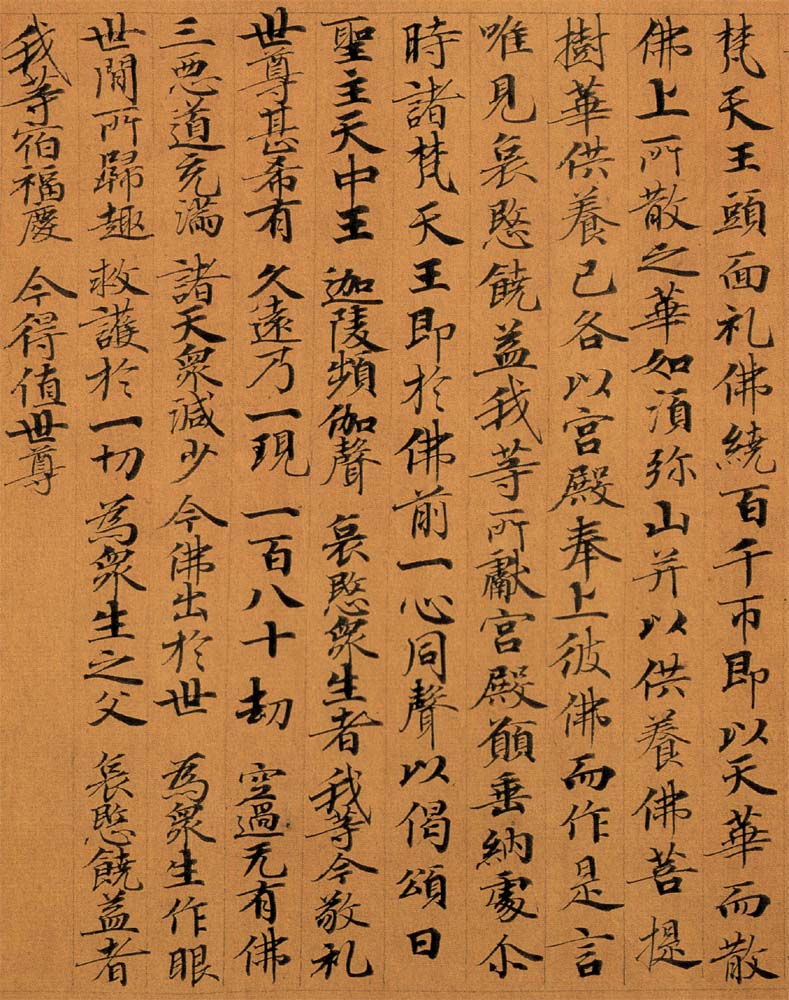 梵天王頭面礼佛繞百千帀即以天華而散
佛上所散之華如湏弥山并以供養佛菩提
樹華供養已各以宮殿奉上彼佛而作是言
唯見哀愍饒益我等所獻宮殿願垂納處尒
時諸梵天王即於佛前一心同聲以偈頌曰
聖主天中王 迦陵頻伽聲 哀愍衆生者 我等今敬礼
世尊甚希有 久遠乃一現 一百八十劫 空過无有佛
三惡道充滿 諸天衆減少 今佛出於世 為衆生作眼
世閒所歸趣 救護於一切 為衆生之父 哀愍饒益者
我等宿福慶 今得值世尊